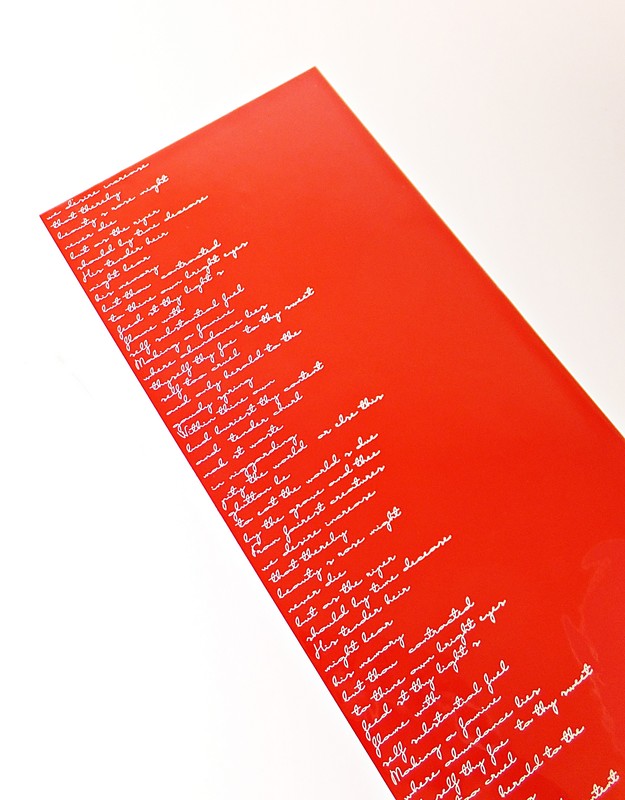 we desire increase
that thereby
beauty s rose might
never die
but as the riper
should by time decease
His tender heir
might bear
his memory
but thou contracted
to thine own bright eyes
feed st thy light s
flame with
self substantial fuel
Making a famine
where abundance lies
thyself thy foe to thy sweet
self too cruel
and only herald to the
gaudy spring
Within thine own
bud buriest thy content
and tender churl
mak st waste
in niggarding
pity the world or else this
glutton be
to eat the world s due
by the grave and thee
From fairest creatures
we desire increase
that thereby
beauty s rose might
never die
but as the riper
should by time decease
His tender heir
might bear
his memory
but thou contracted
to thine own bright eyes
feed st thy light s
flame with
self substantial fuel
Making a famine
where abundance lies
self thy foe to thy sweet
too cruel
herald to the